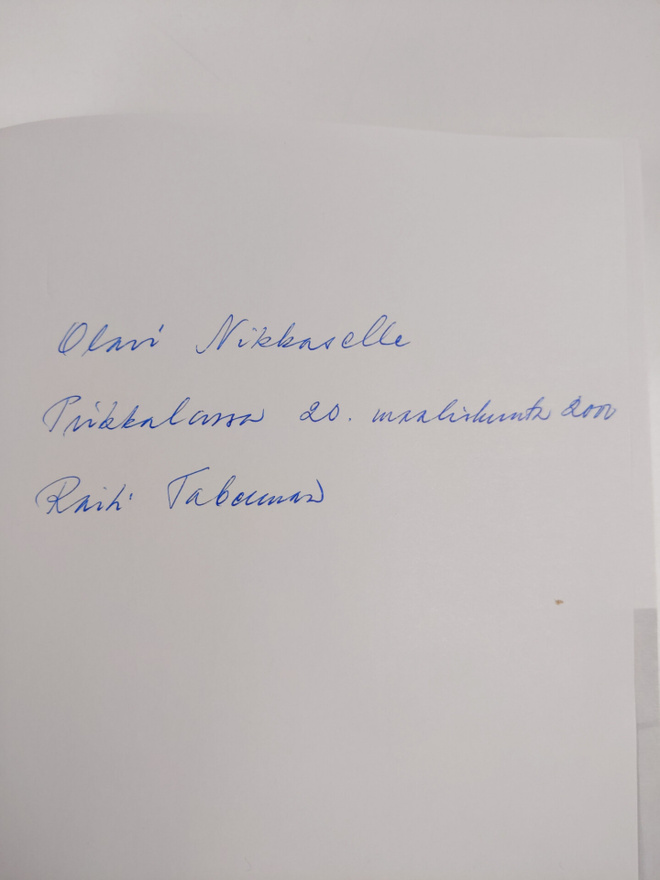 Olavi Nikkaselle
Pirkkalassa 20. maaliskuuta 2000
Raiti Taberman